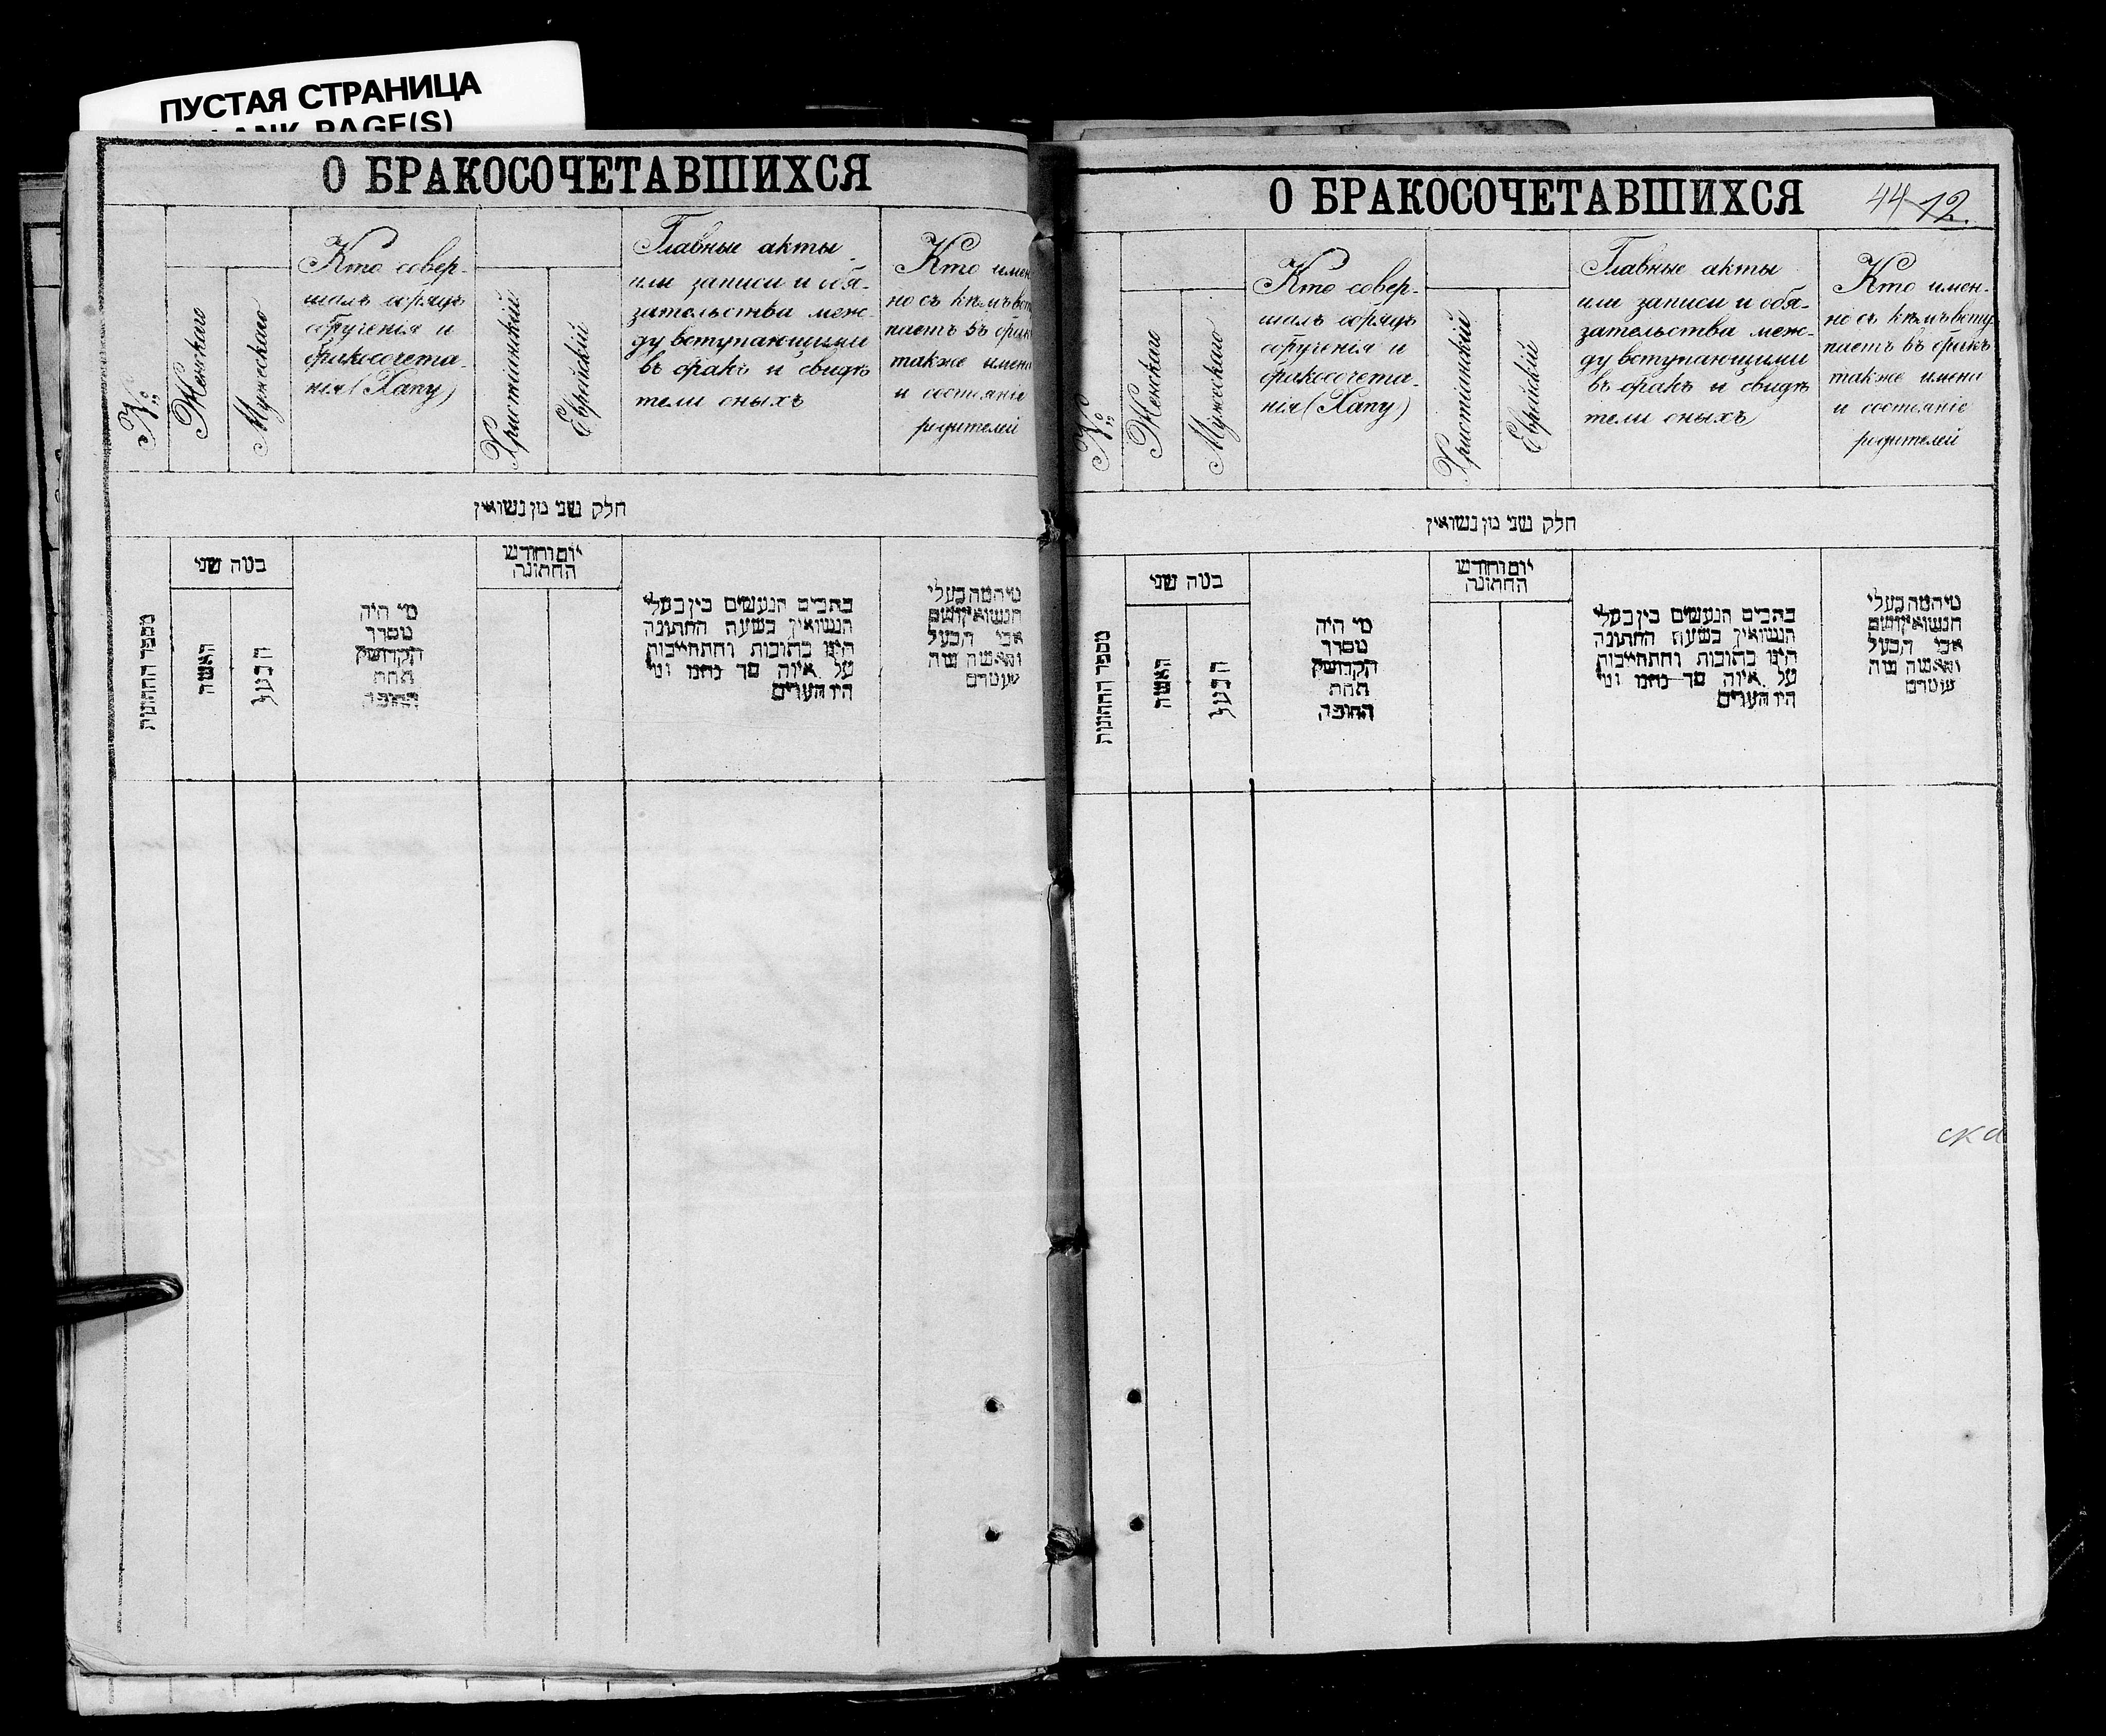 ПУСТАЯ СТРАНИЦА
PAGE(S)
О БРАКОСОЧЕТАВШИХСЯ
№
Женскаго
Мужескаго
Кто совер-
шалъ обрядъ
обрученія и
бракосочета-
нія (Хапу)
Христіанскій
Еврейскій
Главные акты
или записи и обя-
зательства меж-
ду вступающими
въ бракъ и свидѣ
тели оныхъ
Кто имен
но съ кѣмъ всту
паетъ въ бракъ
также имена
и состояніе
родителей
חלק שני מן נשואין
מספר החתונות
כמה שני
האשה
הבעל
מי היה
מסדר
הקדושין
תחת
החופה
יום וחודש
החתונה
כתבים הנעשים בין בעלי
הנשואין בשעת החתונה
היינו כתובות והתחייבות
על איזה סך נתנו ומי
היו העדים
מי המה בעלי
הנשואין ושם
אבי הבעל
והאשה
О БРАКОСОЧЕТАВШИХСЯ
44 12.
№
Женскаго
Мужескаго
Кто совер-
шалъ обрядъ
обрученія и
бракосочета-
нія (Хапу)
Христіанскій
Еврейскій
Главные акты
или записи и обя-
зательства меж-
ду вступающими
въ бракъ и свидѣ
тели оныхъ
Кто имен-
но съ кѣмъ всту
паетъ въ бракъ
также имена
и состояніе
родителей
חלק שני מן נשואין
מספר החתונות
כמה שני
האשה
הבעל
מי היה
מסדר
הקדושין
תחת
החופה
יום וחודש
החתונה
כתבים הנעשים בין בעלי
הנשואין בשעת החתונה
היינו כתובות והתחייבות
על איזה סך נתנו ומי
היו העדים
מי המה בעלי
הנשואין ושם
אבי הבעל
והאשה
ска